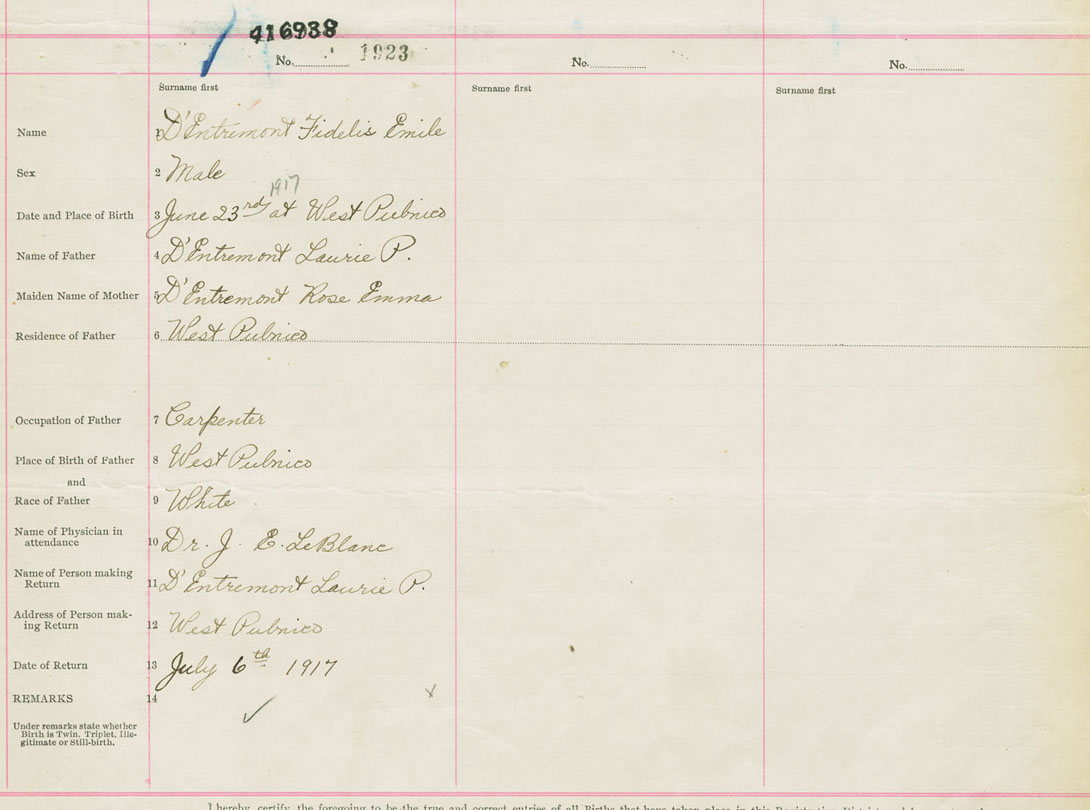 416938
No. 1923 No. No.
Surname first Surname first Surname first
Name 1 D'Entremont Fidelis Emile
Sex 2 Male
1917
Date and Place of Birth 3 June 23rd at West Pubnico
Name of Father 4 D'Entremont Laurie P.
Maiden Name of Mother 5 D'Entremont Rose Emma
Residence of Father 6 West Pubnico
Occupation of Father 7 Carpenter
Place of Birth of Father 8 West Pubnico
and
Race of Father 9 White
Name of Physician in
attendance 10 Dr. J. E. LeBlanc
Name of Person making
Return 11 D'Entremont Laurie P.
Address of Person mak-
ing Return 12 West Pubnico
Date of Return 13 July 6th 1917
REMARKS 14
Under remarks state whether
Birth is Twin, Triplet, Ille-
gitimate or Still-birth.
I hereby certify the foregoing to be the true and correct entries of all Births that have taken place in this Registration District